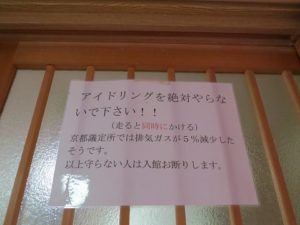 アイドリングを絶対やらな
いで下さい！！
（走ると同時にかける）
京都議定所では排気ガスが５％減少した
そうです。
以上守らない人は入館お断りします。